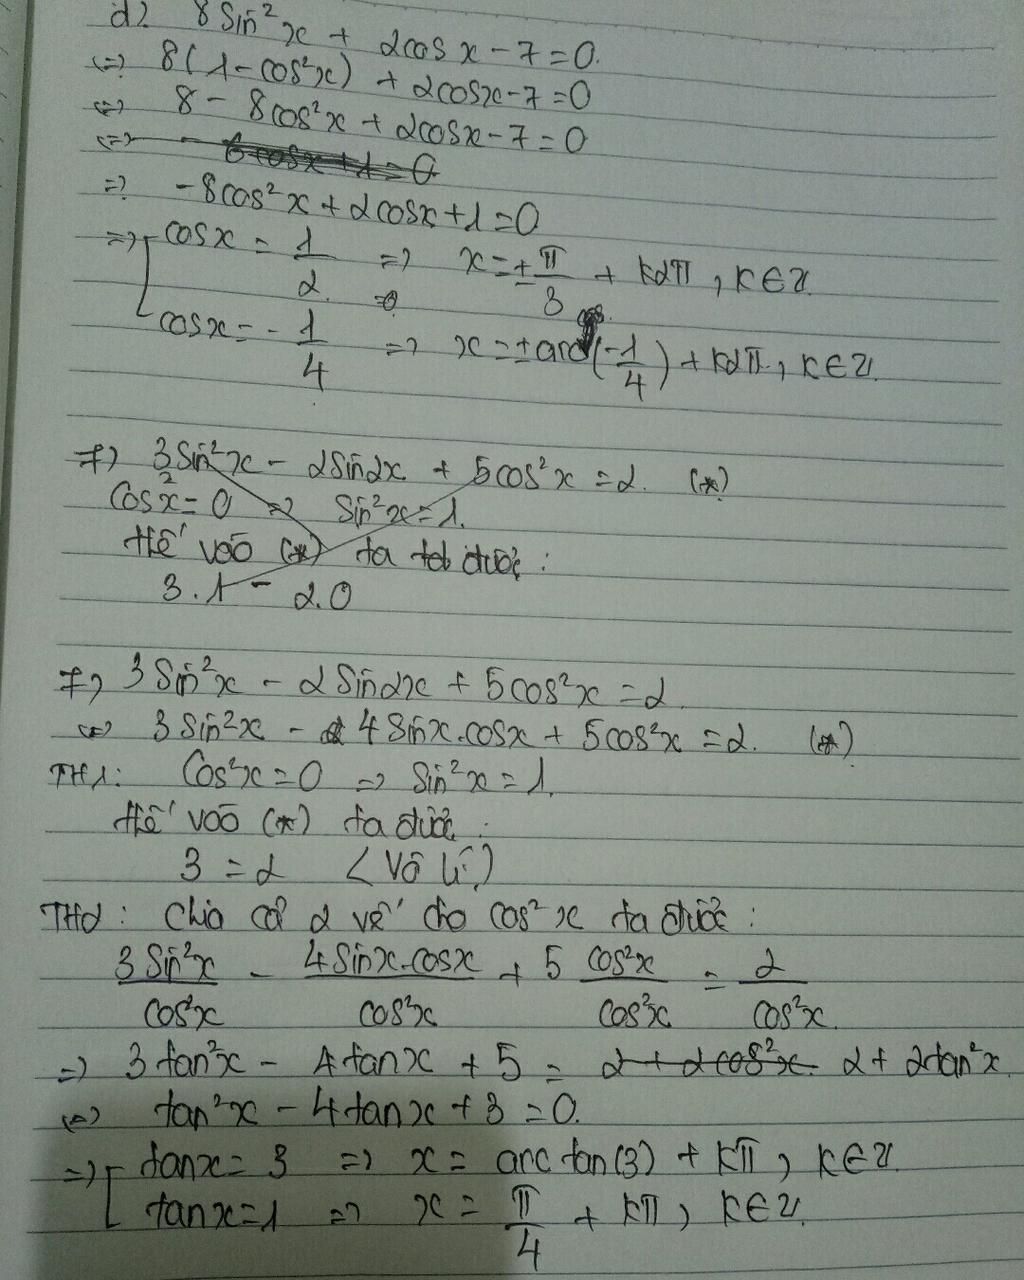 d) 8 sin²x + 2cos x - 7 = 0.
(=) 8(1 - cos²x) + 2cosx - 7 = 0
(=) 8 - 8cos²x + 2cosx - 7 = 0
(=) - 6cosx + 1 = 0
=) -8cos²x + 2cosx + 1 = 0
=) [ cosx = 1/2 =) x = ± π/3 + k2π, k ∈ Z.
cosx = - 1/4 =) x = ± arccos(-1/4) + k2π, k ∈ Z.
f) 3sin²x - 2sin2x + 5cos²x = 2. (*)
Cos²x = 0 => sin²x = 1.
thế vào (*) ta được :
3.1 - 2.0
f) 3 sin²x - 2 sin2x + 5cos²x = 2.
(=) 3 sin²x - 4 sinx.cosx + 5cos²x = 2. (*)
TH1: Cos²x = 0 => sin²x = 1.
thế vào (*) ta được :
3 = 2 (Vô lí)
TH2: Chia cả 2 vế cho cos²x ta được :
3 sin²x/cos²x - 4 sinx.cosx/cos²x + 5 cos²x/cos²x = 2/cos²x.
=) 3 tan²x - 4 tanx + 5 = 2 + 2cos²x. 2 + 2tan²x.
(=) tan²x - 4 tanx + 3 = 0.
=) [ tanx = 3 => x = arc tan(3) + kπ, k ∈ Z.
tanx = 1 => x = π/4 + kπ, k ∈ Z.